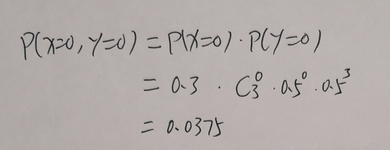 P(X=0, Y=0) = P(X=0) · P(Y=0)
= 0.3 · C₃⁰ · 0.5⁰ · 0.5³
= 0.0375